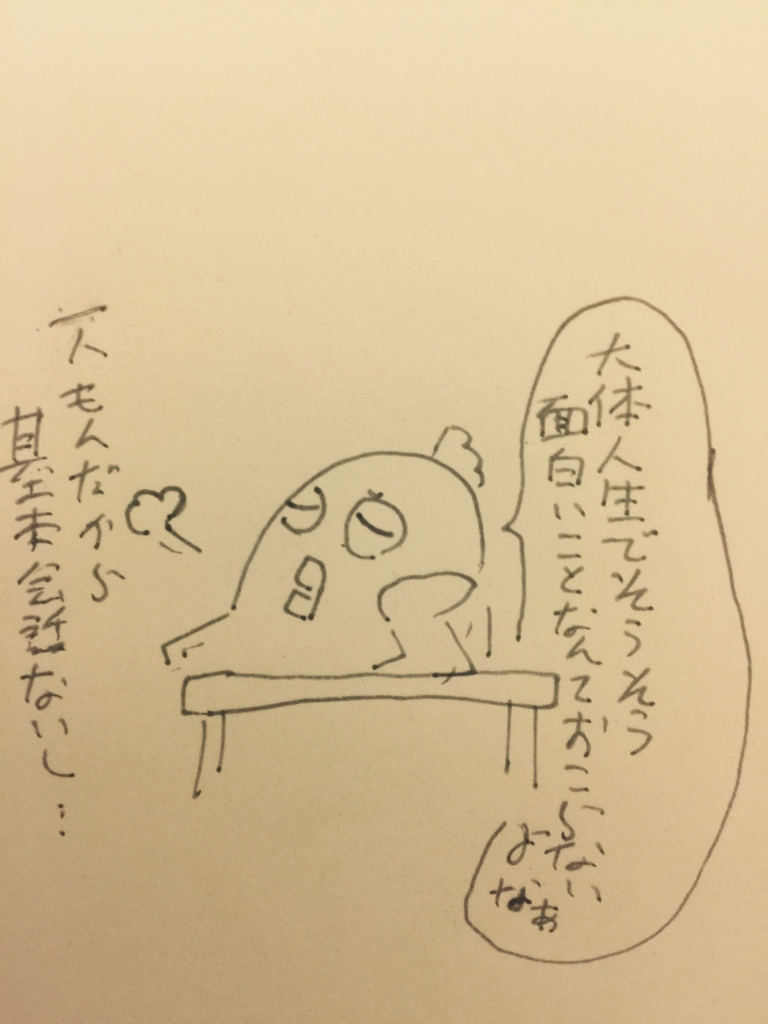 大体人生でそうそう
面白いことなんておこらない
よなぁ
一人もんだから
基本会話ないし…